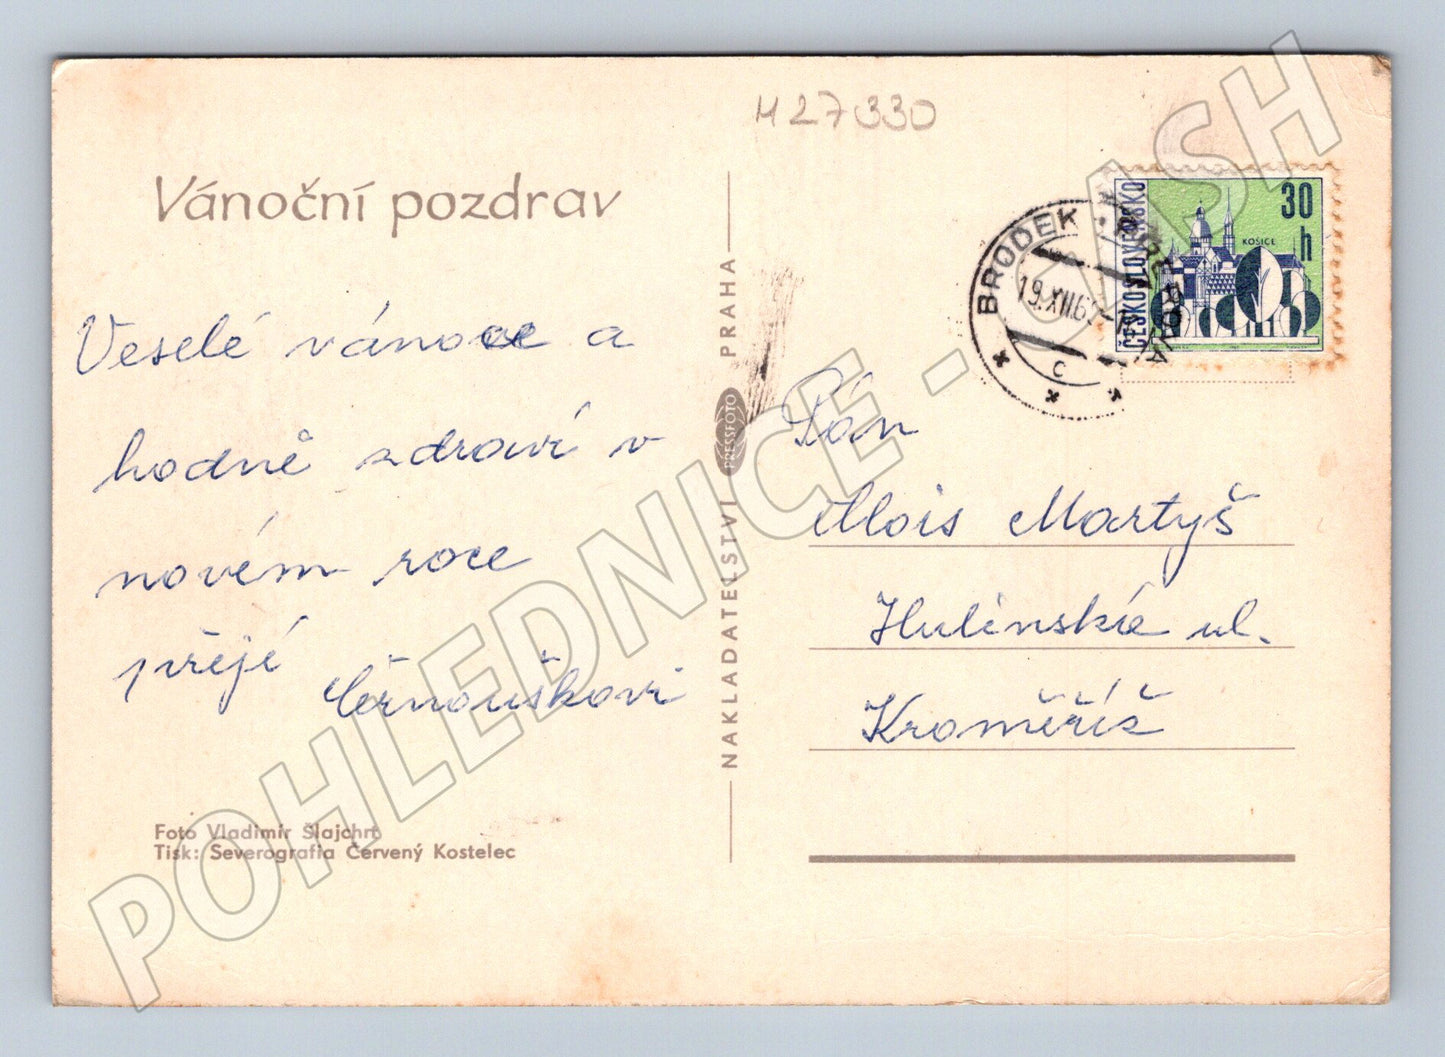 M 27330
Vánoční pozdrav
Veselé vánoce a
hodně zdraví v
novém roce
přejí
Černouškovi
Foto Vladimír Šlajchrt
Tisk: Severografia Červený Kostelec
NAKLADATELSTVÍ PRESSFOTO PRAHA
BRODEK
19.XII.6
C
ČESKOSLOVENSKO
30 h
KOŠICE
Pán
Alois Martyš
Hulínská ul.
Kroměříž
POHLEDNICE - CASH